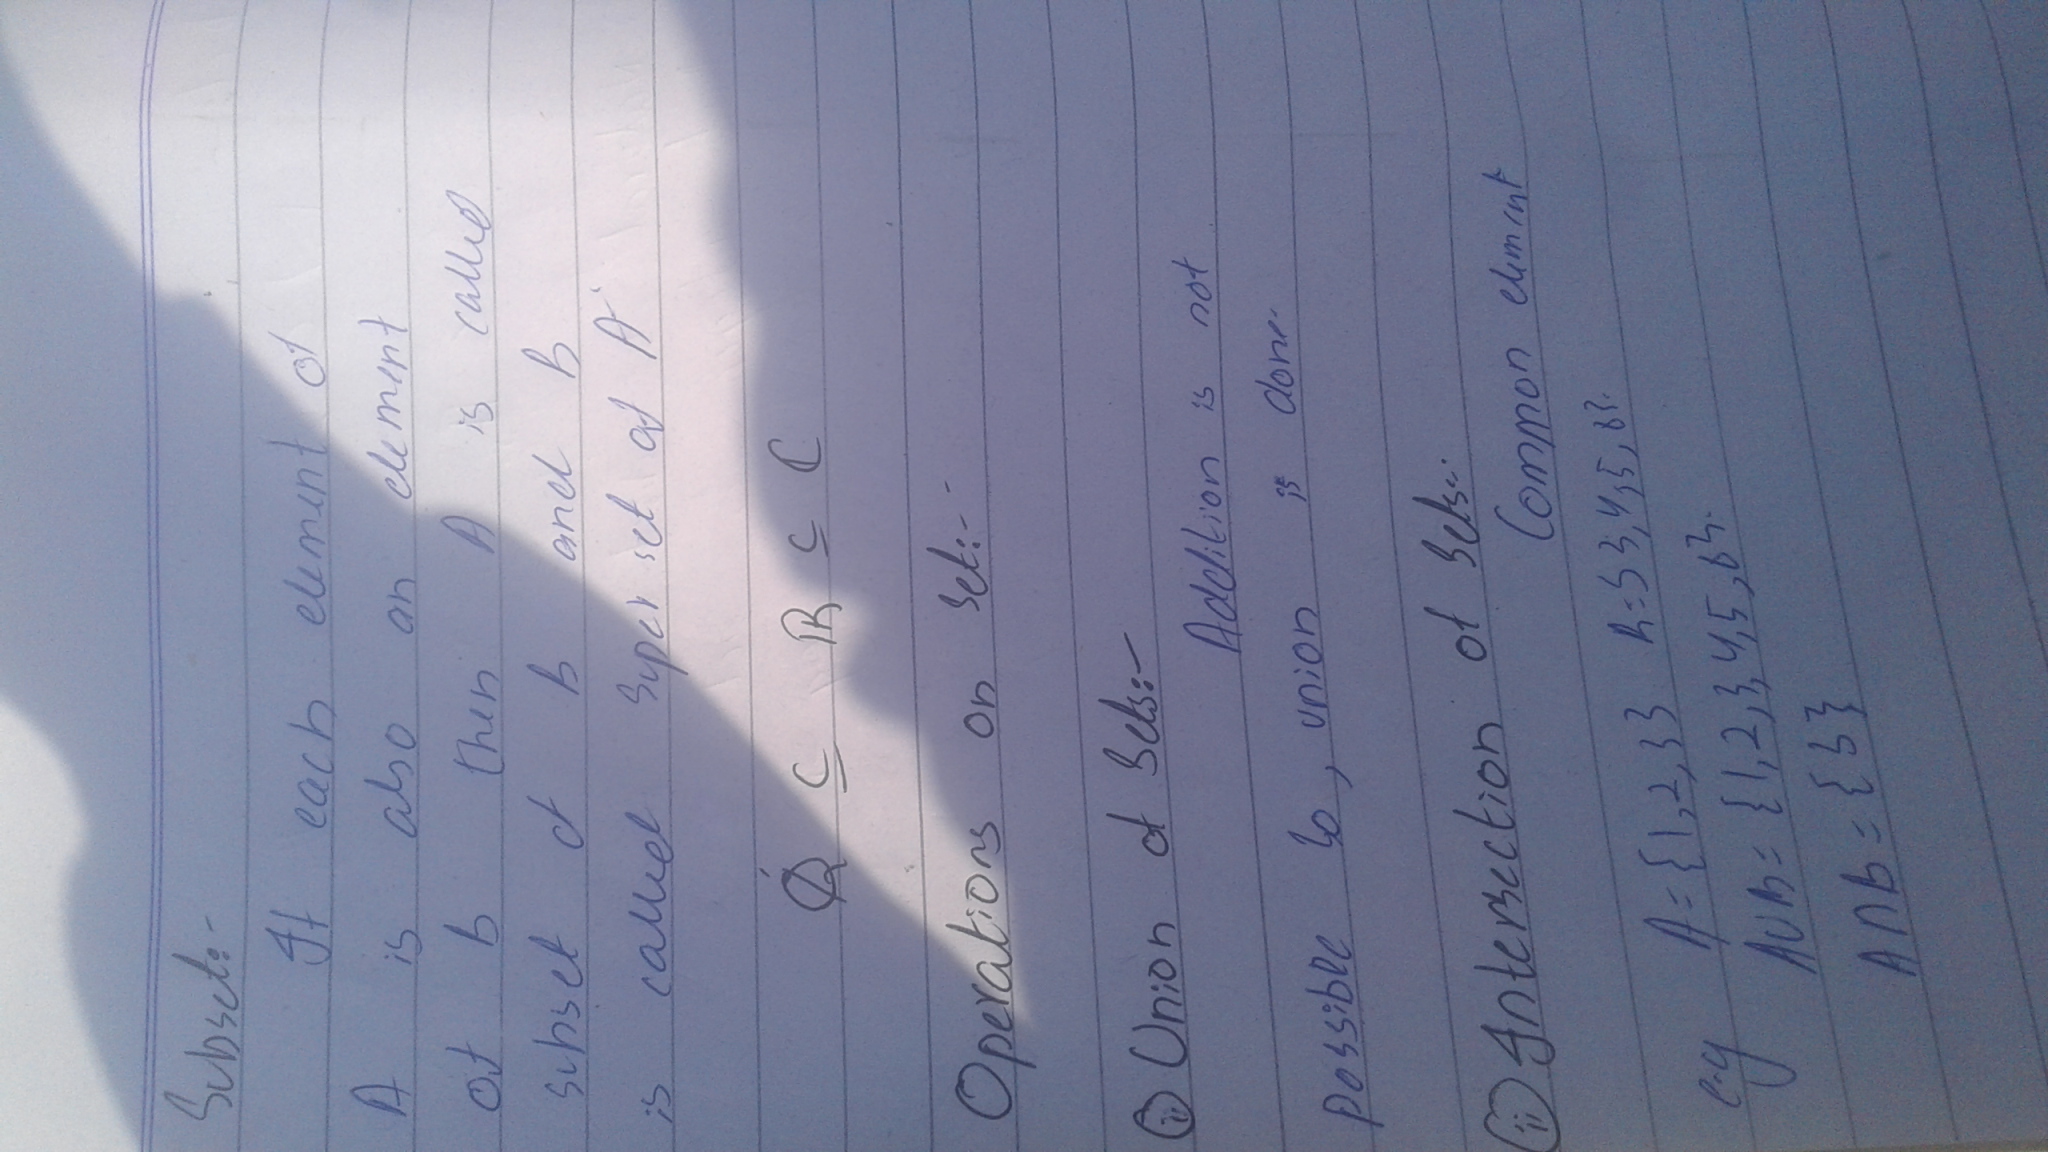 Subset:-
If each element of
A is also an element
of B then A is called
subset of B and B
is called Super set of A
Q́ ⊆ R ⊆ C
Operations on Set:-
(i) Union of Sets:-
Addition is not
possible so, union is done.
(ii) Intersection of Sets:-
Common element
e.g A = {1,2,3} B = {3,4,5,6}.
A∪B = {1,2,3,4,5,6}.
A∩B = {3}